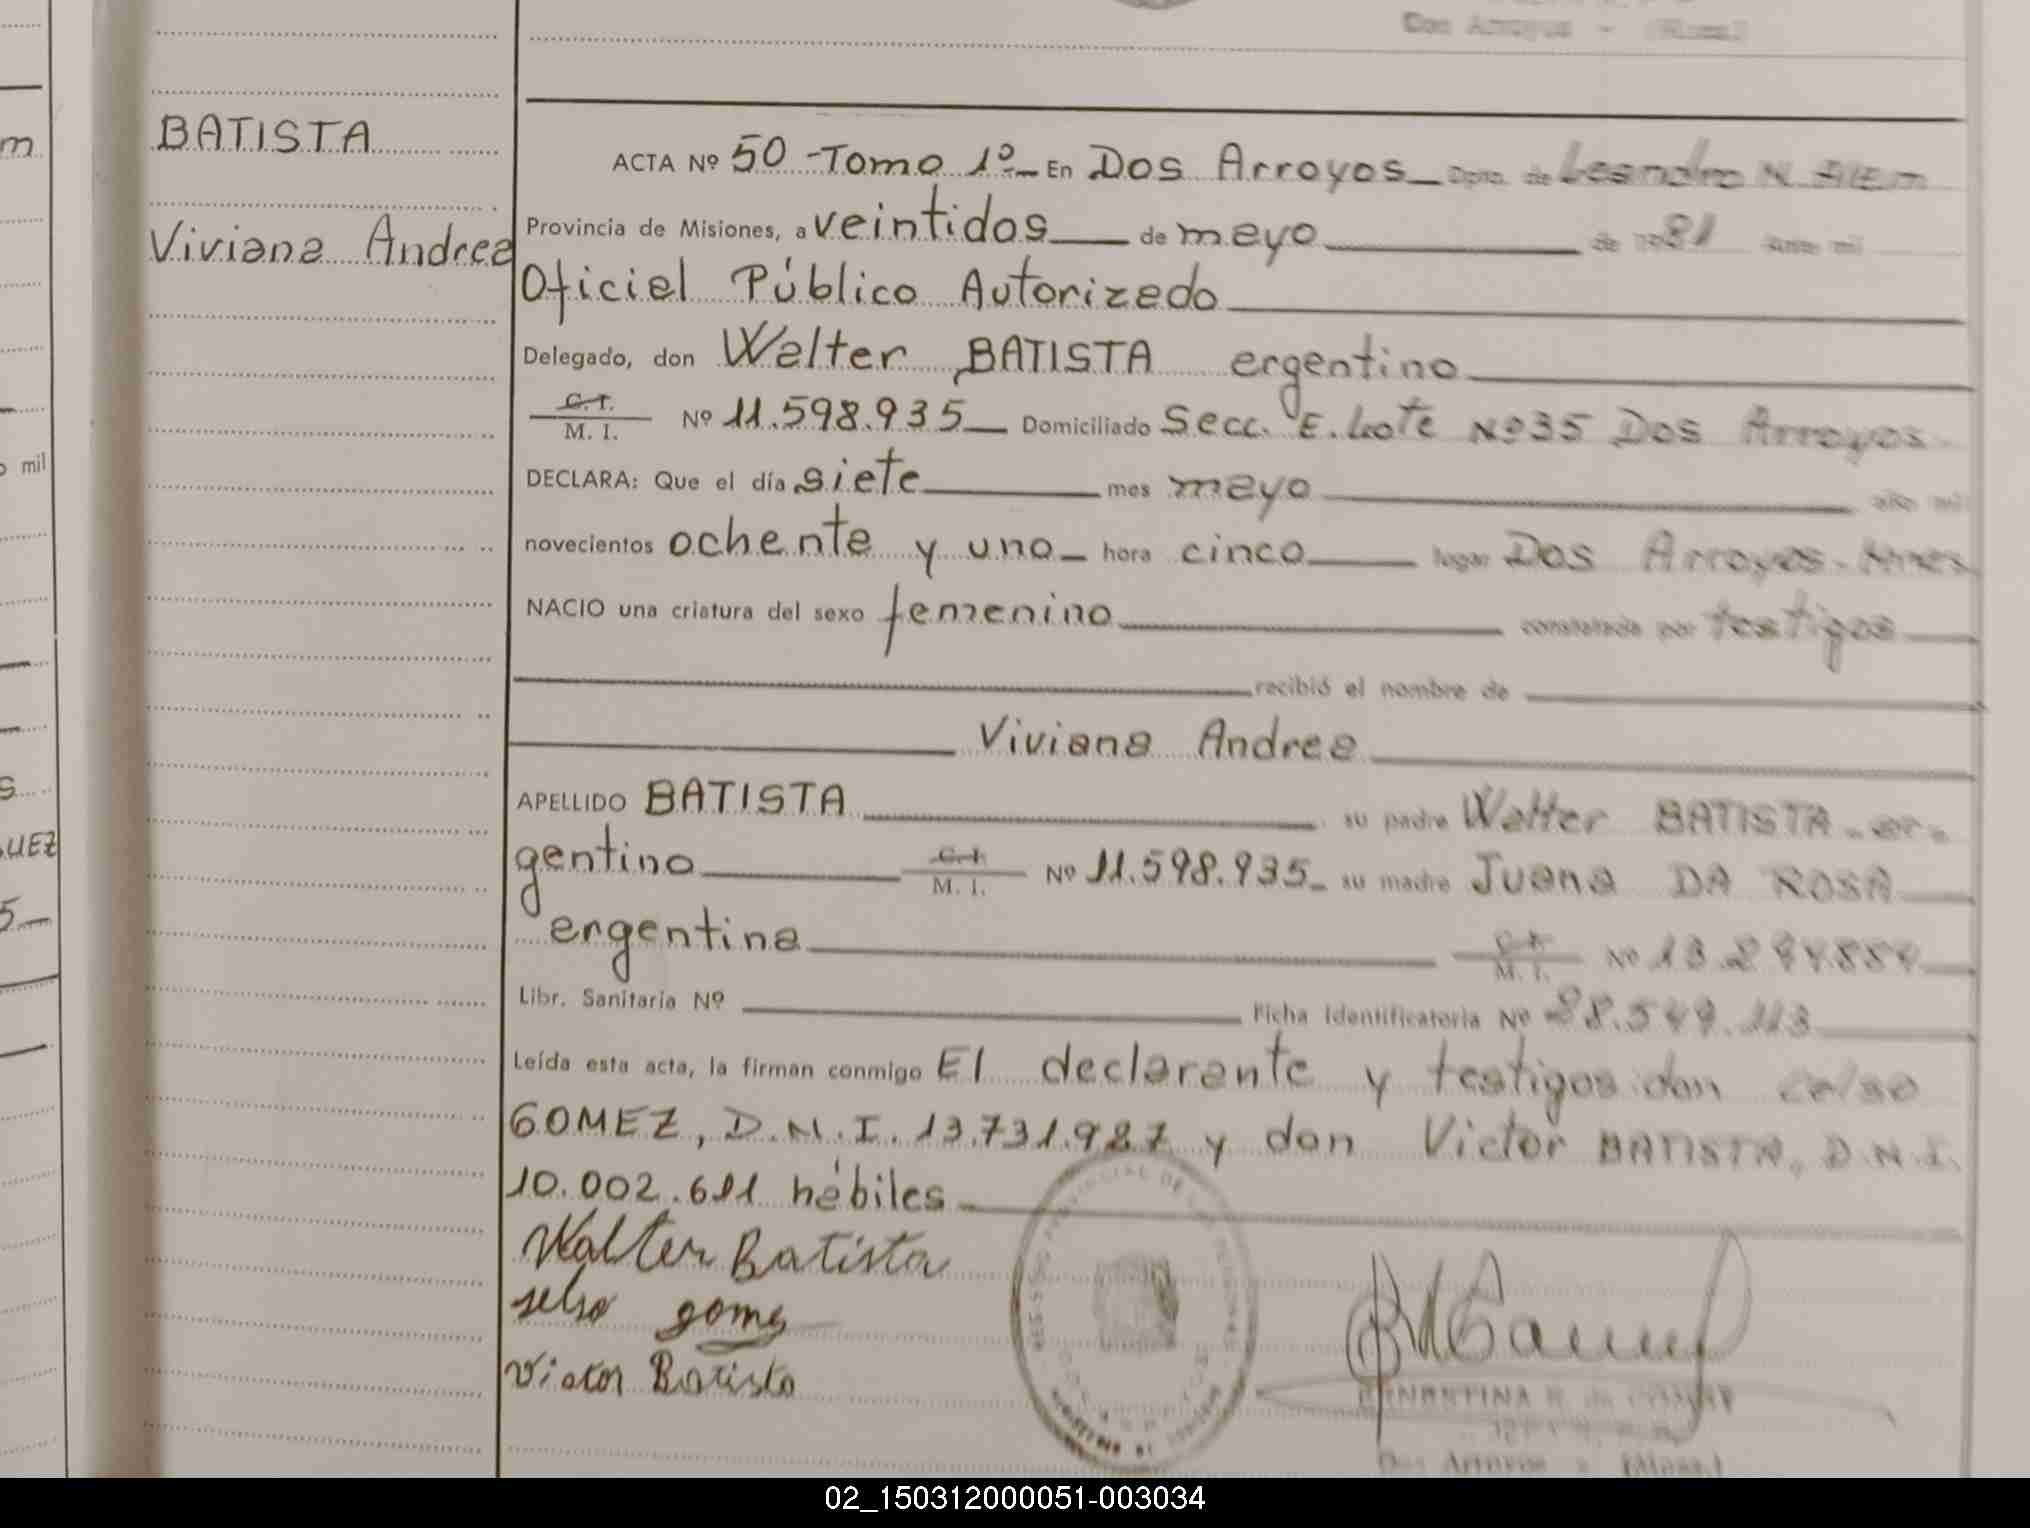 Dos Arroyos - (Mnes)
BATISTA
Viviana Andrea
ACTA Nº 50 - Tomo 1º - En Dos Arroyos - Dpto. de Leandro N. Alem
Provincia de Misiones, a veintidos de mayo de 1981 Ante mi
Oficial Público Autorizado
Delegado, don Walter BATISTA argentino
C. I.
M. I. Nº 11.598.935 Domiciliado Secc. E. Lote Nº 35 Dos Arroyos -
DECLARA: Que el día siete mes mayo año mil
novecientos ochenta y uno - hora cinco lugar Dos Arroyos - Mnes
NACIO una criatura del sexo femenino constatado por testigos
recibió el nombre de
Viviana Andrea
APELLIDO BATISTA su padre Walter BATISTA - ar-
gentino C. I.
M. I. Nº 11.598.935 - su madre Juana DA ROSA
argentina C. I.
M. I. Nº
Libr. Sanitaria Nº Ficha Identificatoria Nº
Leída esta acta, la firman conmigo El declarante y testigos don Celso
GOMEZ, D.N.I. 13.731.987 y don Victor BATISTA, D.N.I.
10.002.611 hábiles
Walter Batista
selso gomes
Victor Batista
Dos Arroyos - (Mnes)
o mil
UEZ
02_150312000051-003034